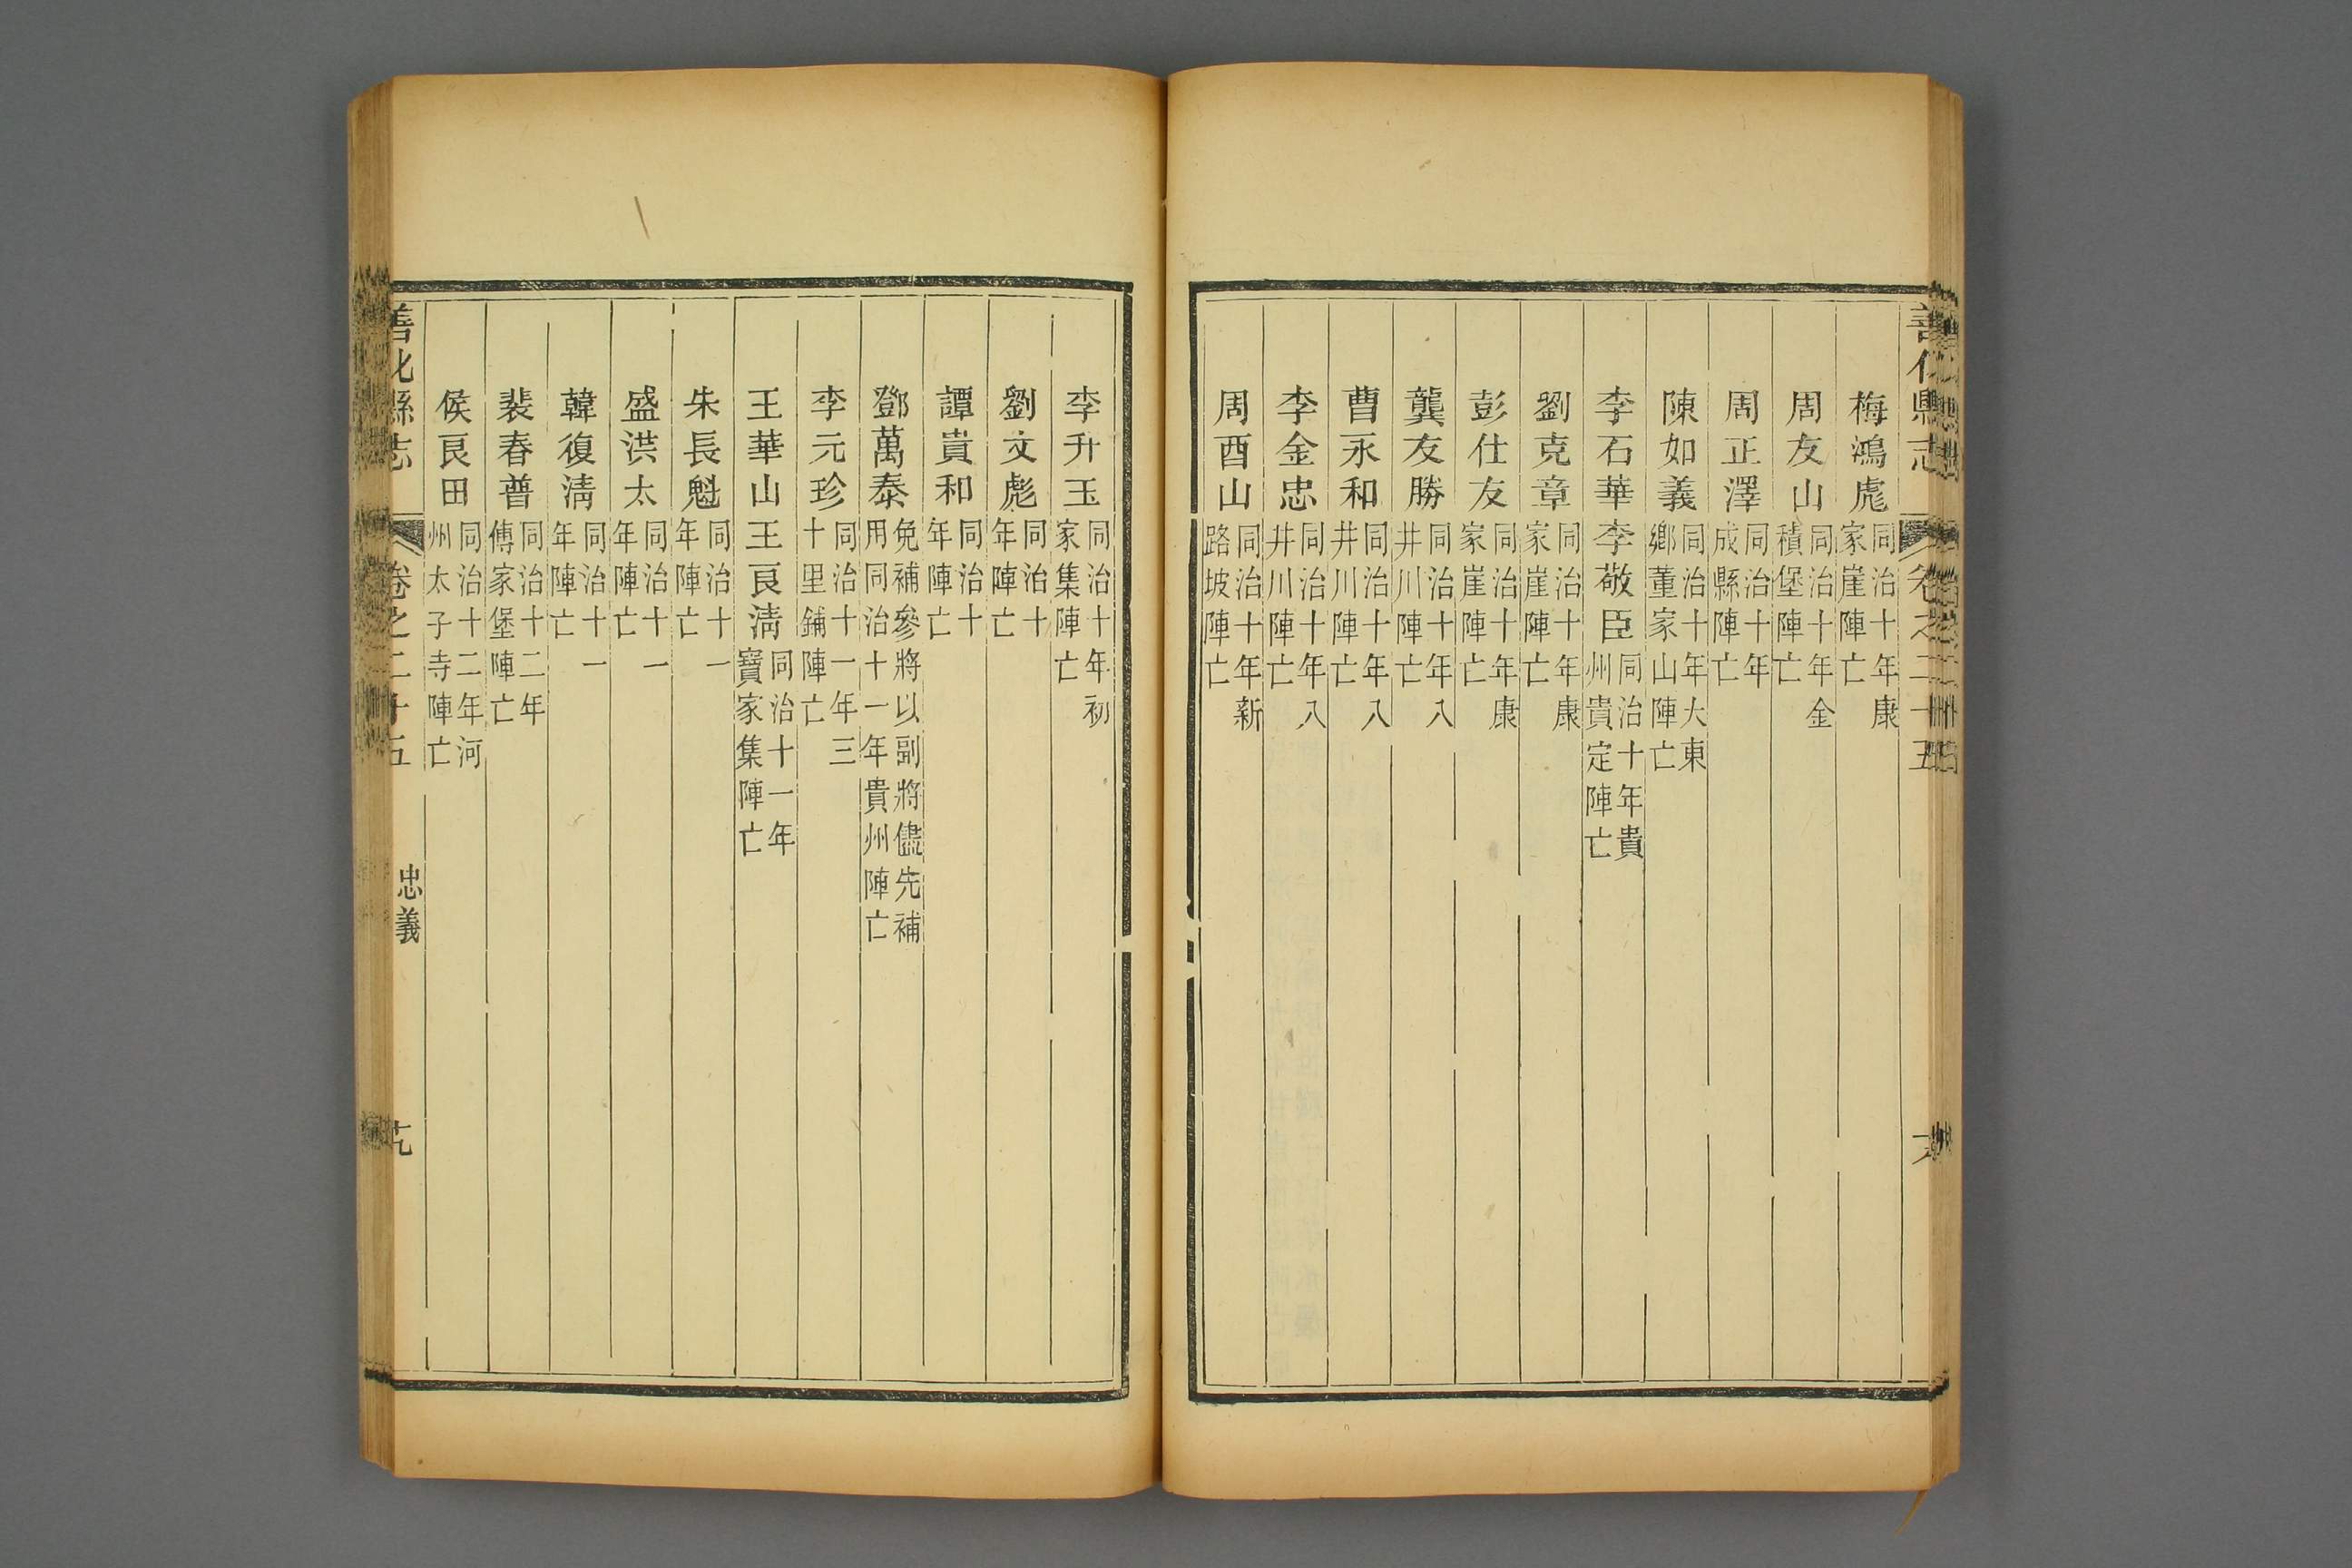 善化縣志　卷之二十五
梅鴻彪 同治十年康家崖陣亡
周友山 同治十年金積堡陣亡
周正澤 同治十年成縣陣亡
陳如義 同治十年大東鄉董家山陣亡
李石華 李敬臣 同治十年貴州貴定陣亡
劉克章 同治十年康家崖陣亡
彭仕友 同治十年康家崖陣亡
龔友勝 同治十年八井川陣亡
曹永和 同治十年八井川陣亡
李金忠 同治十年八井川陣亡
周酉山 同治十年新路坡陣亡
李升玉 同治十年初家集陣亡
劉文彪 同治十年陣亡
譚貴和 同治十年陣亡
鄧萬泰 免補參將以副將儘先補用同治十一年貴州陣亡
李元珍 同治十一年三十里鋪陣亡
王華山 王良淸 同治十一年寶家集陣亡
朱長魁 同治十一年陣亡
盛洪太 同治十一年陣亡
韓復淸 同治十一年陣亡
裴春普 同治十二年傅家堡陣亡
侯良田 同治十二年河州太子寺陣亡
善化縣志　卷之二十五　忠義